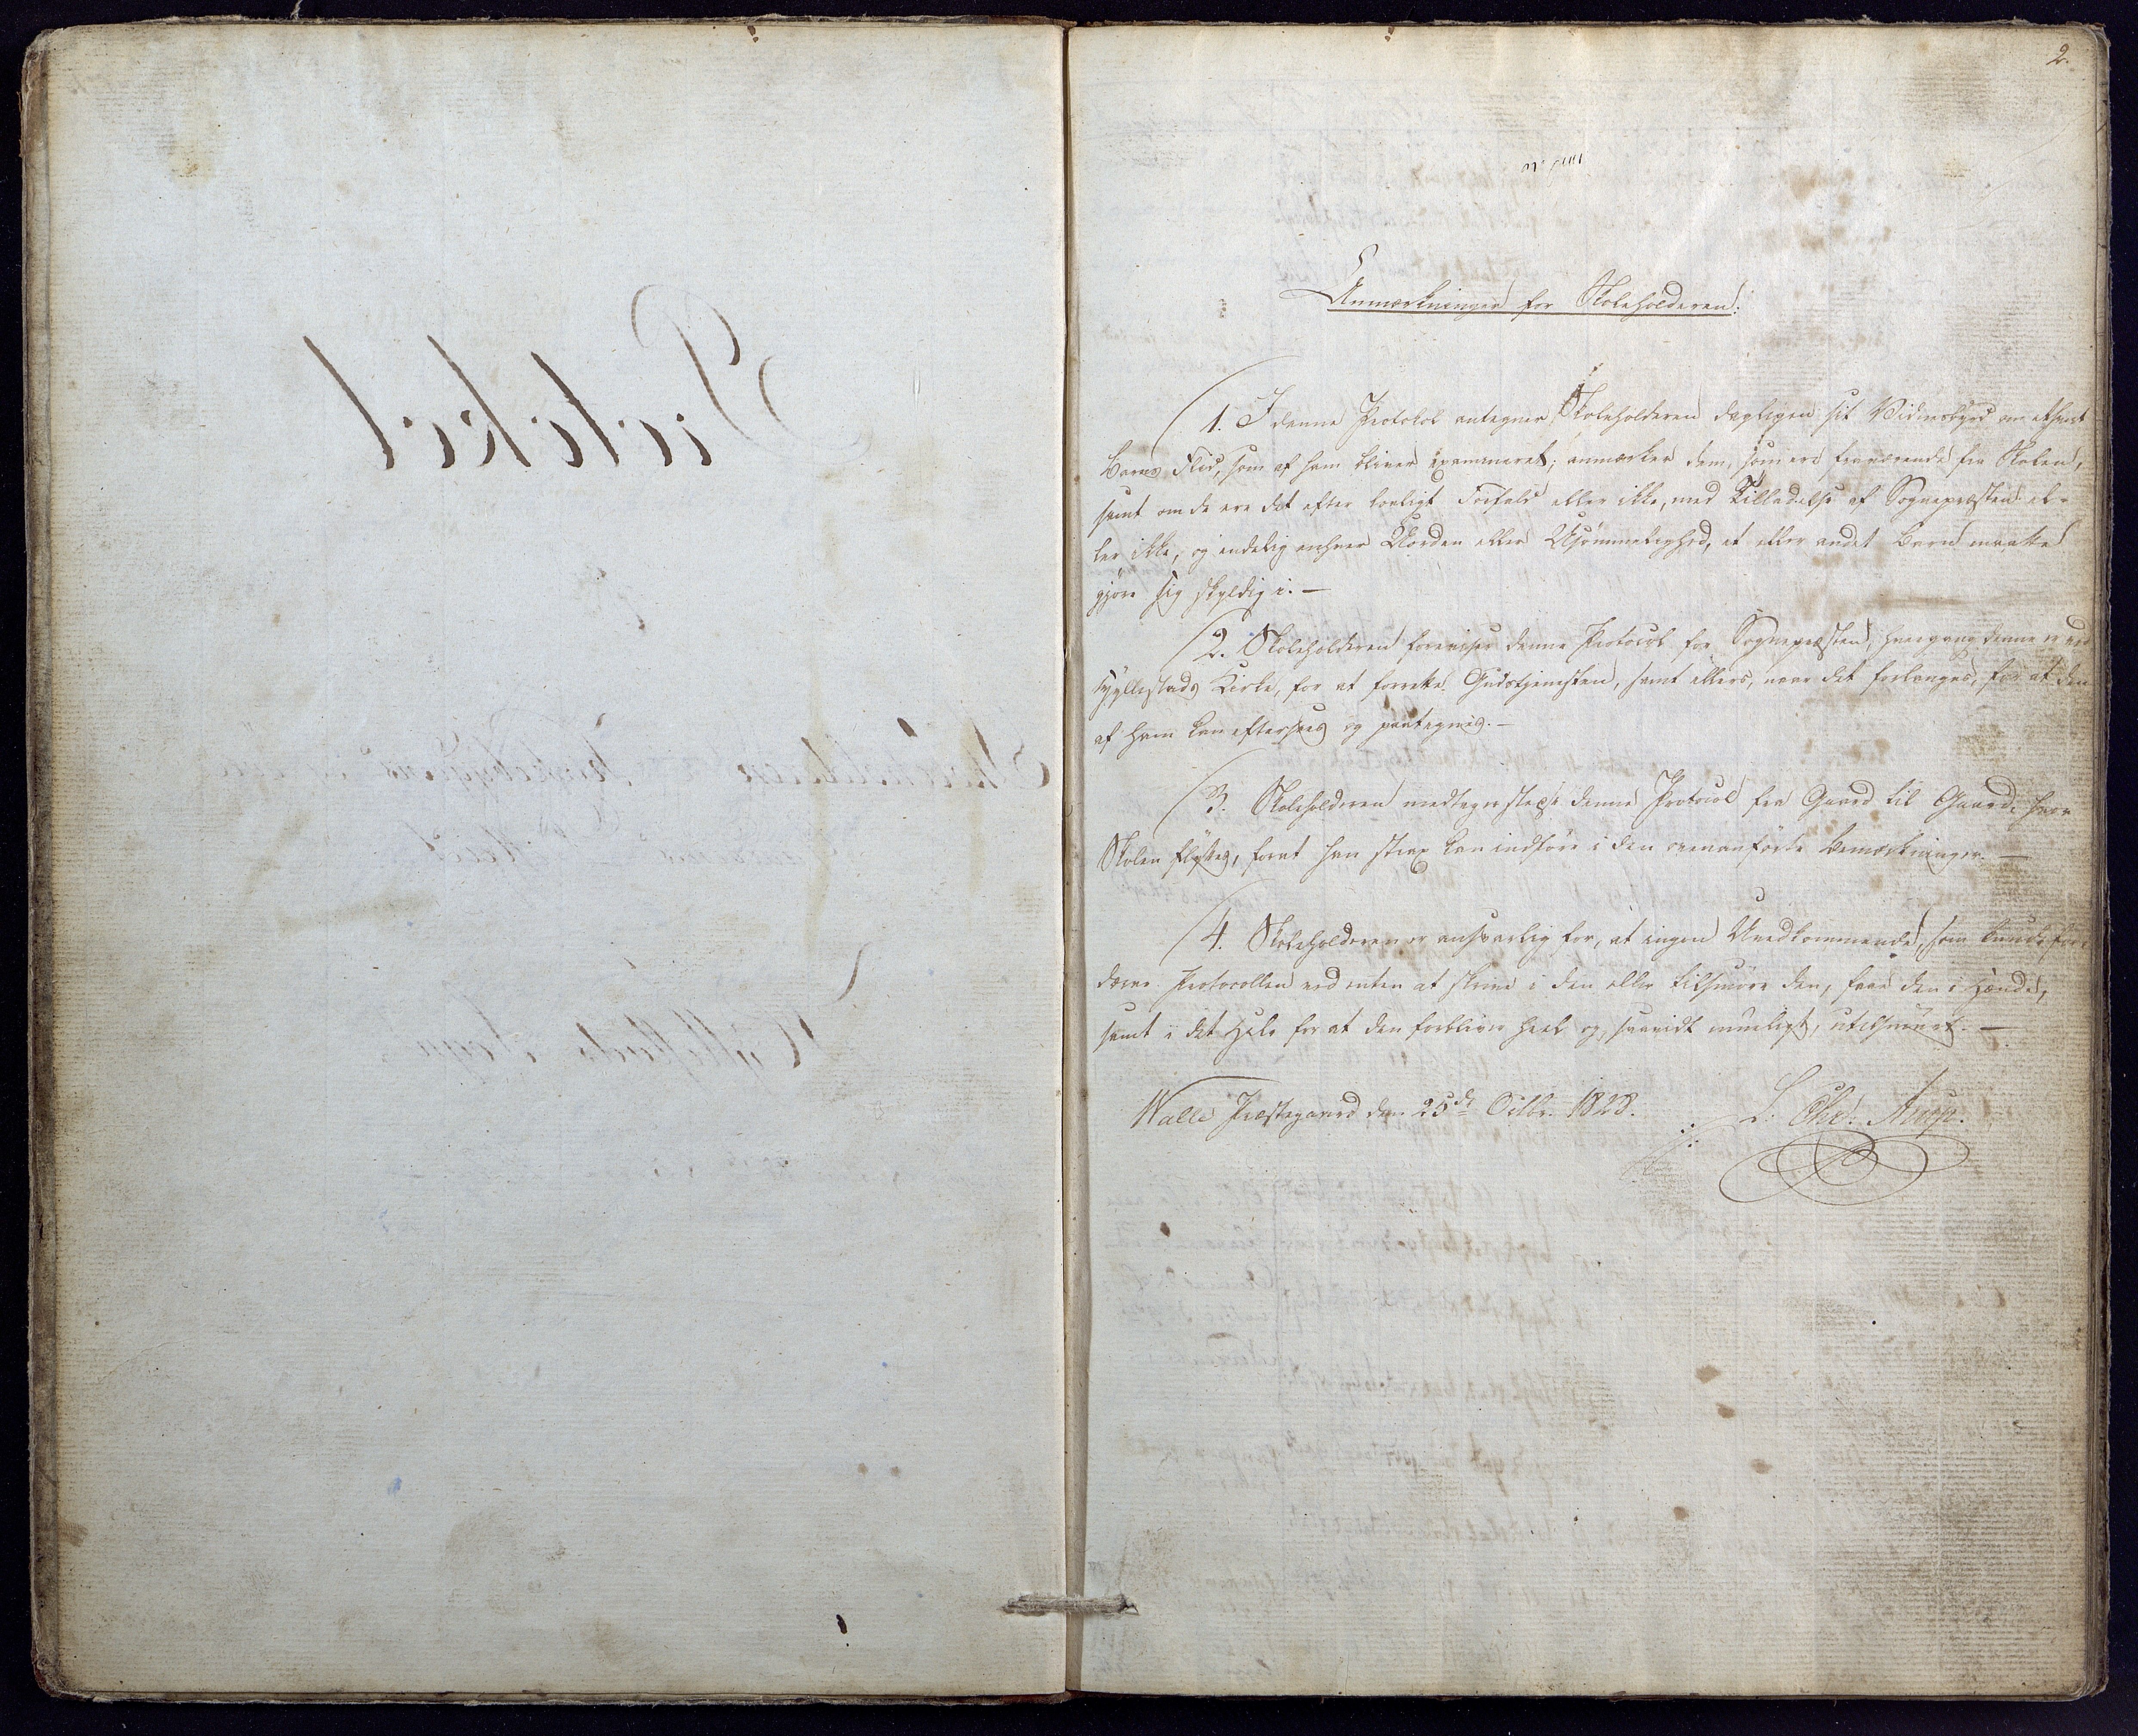 2.
Anmærkninger for Skoleholderen:
1. I denne Protokol antegner Skoleholderen dagligen sit Vidnesbyrd om ethvert
Barns Flid, som af ham bliver examineret; anmærker dem, som ere fraværende fra Skolen,
samt om de ere det efter lovligt Forfald eller ikke, med Tilladelse af Sognepræsten el-
ler ikke, og endelig enhver Uorden eller Usømmelighed, et eller andet Barn maatte
gjøre sig skyldig i. —
2. Skoleholderen foreviser denne Protocol for Sognepræsten, hvergang denne er ved
Hyllestads Kirke, for at forrette Gudstjenesten, samt ellers, naar det forlanges, for at den
af ham kan eftersees og paategnes. —
3. Skoleholderen medtager stedse denne Protocol fra Gaard til Gaard, hvor
Skolen flyttes, forat han strax kan indføre i den ovenanførte Bemærkninger. —
4. Skoleholderen er ansvarlig for, at ingen Uvedkommende, som kunde for-
dærve Protocollen ved enten at skrive i den eller tilsmøre den, faae den i Hænde,
samt i det Hele for at den forbliver heel og, saavidt mueligt, utilsmurt. —
Walle Præstegaard den 25de Octbr. 1828.
L. Chr. Aarup.
Protokol
Hyllestads Sogn